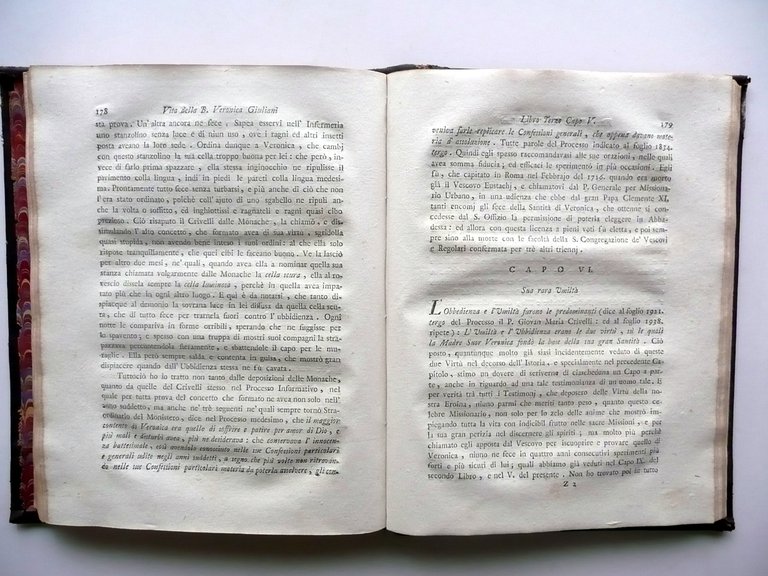 178 Vita della B. Veronica Giuliani
sta prova. Un'altra ancora ne fece. Sapea esservi nell'Infermeria
uno stanzolino senza luce e di niun uso, ove i ragni ed altri insetti
posta aveano la loro sede. Ordina dunque a Veronica, che cambj
con questo stanzolino la sua cella troppo buona per lei: che però, in-
vece di farlo prima spazzare, ella stessa inginocchione ne ripulisse il
pavimento colla lingua, indi in piedi le pareti colla lingua medesi-
ma. Prontamente tutto fece senza turbarsi, e più anche di ciò che non
l'era stato ordinato, poichè coll'ajuto di uno sgabello ne ripulì an-
che la volta o soffitto, ed inghiottissi e ragnateli e ragni quasi cibo
prezioso. Ciò risaputo il Crivelli dalle Monache, la chiamò, e dis-
simulando l'alto concetto, che formato avea di sua virtù, sgridolla
quasi stupida, non avendo bene intesi i suoi ordini: al che ella solo
rispose tranquillamente, che quei cibi le faceano buono. Ve la lasciò
per altro due mesi, ne' quali, quando avea ella a nominar quella sua
stanza chiamata volgarmente dalle Monache la cella scura, ella al ro-
vescio diseela sempre la cella luminosa, perchè in quella avea impa-
rato più che in ogni altro luogo. E qui è da notarsi, che tanto di-
spiacque al demonio la sovrana luce in lei diffusa da quella cella scu-
ra, che di tutto fece per trarnela fuori contro l'ubbidienza. Ogni
notte le compariva in forme orribili, sperando che ne fuggisse per
lo spavento; e spesso con una truppa di mostri suoi compagni la stra-
pazzava percuotendola fieramente, e sbattendole il capo per le mu-
raglie. Ella però sempre salda, e contenta in guisa, che mostrò gran
dispiacere quando dall'Ubbidienza stessa ne fu cavata.
Tuttociò ho io tratto non tanto dalle deposizioni delle Monache,
quanto da quelle del Crivelli stesso nel Processo Informativo, nel
quale per tutta prova del concetto che formato ne avea non solo nell'
anno suddetto, ma anche ne' trè seguenti ne' quali sempre tornò Stra-
ordinario del Monistero, dice nel Processo medesimo, che il maggior
contento di Veronica era quello di offrire e patire per amor di Dio, e
più mali e disturbi avea, più ne desiderava: che conservava l'innocen-
za battesimale, così avendolo conosciuto nelle sue Confessioni particolari
e generali udite negli anni suddetti, a segno che più volte non ritrovan-
do nelle sue Confessioni particolari materia da poterla assolvere, gli con-
Libro Terzo Capo V. 179
veniva farle replicare le Confessioni generali, che appena davano mate-
ria d'assoluzione. Tutte parole del Processo indicato al foglio 1834.
tergo. Quindi egli spesso raccomandavasi alle sue orazioni, nelle quali
avea somma fiducia; ed efficaci le sperimentò in più occasioni. Egli
fù, che capitato in Roma nel Febbrajo del 1716. quando era morto
già il Vescovo Eustachj, e chiamatovi dal P. Generale per Missiona-
rio Urbano, in una udienza che ebbe dal gran Papa Clemente XI,
tanti encomj gli fece della Santità di Veronica, che ottenne si con-
cedesse dal S. Offizio la permissione di poterla eleggere in Abba-
dessa: ed allora con questa licenza a pieni voti fù eletta, e poi sem-
pre sino alla morte con la facoltà della S. Congregazione de' Vescovi
e Regolari confermata per trè altri triennj.
CAPO VI.
Sua rara Umiltà
L'Obbedienza e l'Umiltà furono le predominanti (dice al foglio 1921.
tergo del Processo il P. Giovan Maria Crivelli: ed al foglio 1938.
ripete): L'Umiltà e l'Ubbidienza erano le due virtù, in le quali
la Madre Suor Veronica fondò la base della sua gran Santità. Ciò
posto, quantunque molto già siasi incidentemente veduto di queste
due Virtù nel decorso dell'Istoria, e specialmente nel precedente Ca-
pitolo, stimo un dovere di scriverne di ciascheduna un Capo a par-
te, anche in riguardo ad una tale testimonianza di un uomo tale. E
per verità trà tutti i Testimonj, che deposero delle Virtù della no-
stra Eroina, niuno parmi che meriti tanto peso, quanto questo ce-
lebre Missionario, non solo per lo zelo delle anime che mostrò im-
piegando tutta la vita con indicibil frutto nelle sacre Missioni, e per
la sua gran perizia nel discernere gli spiriti; ma molto più perchè
chiamato egli apposta dal Vescovo per iscuoprire e provare quello di
Veronica, niuno ne fece in quattro anni consecutivi sperimenti più
forti e più sicuri di lui; quali abbiamo già veduti nel Capo IX. del
secondo Libro, e nel V. del presente. Non ho trovato poi fà tutto
Z 2